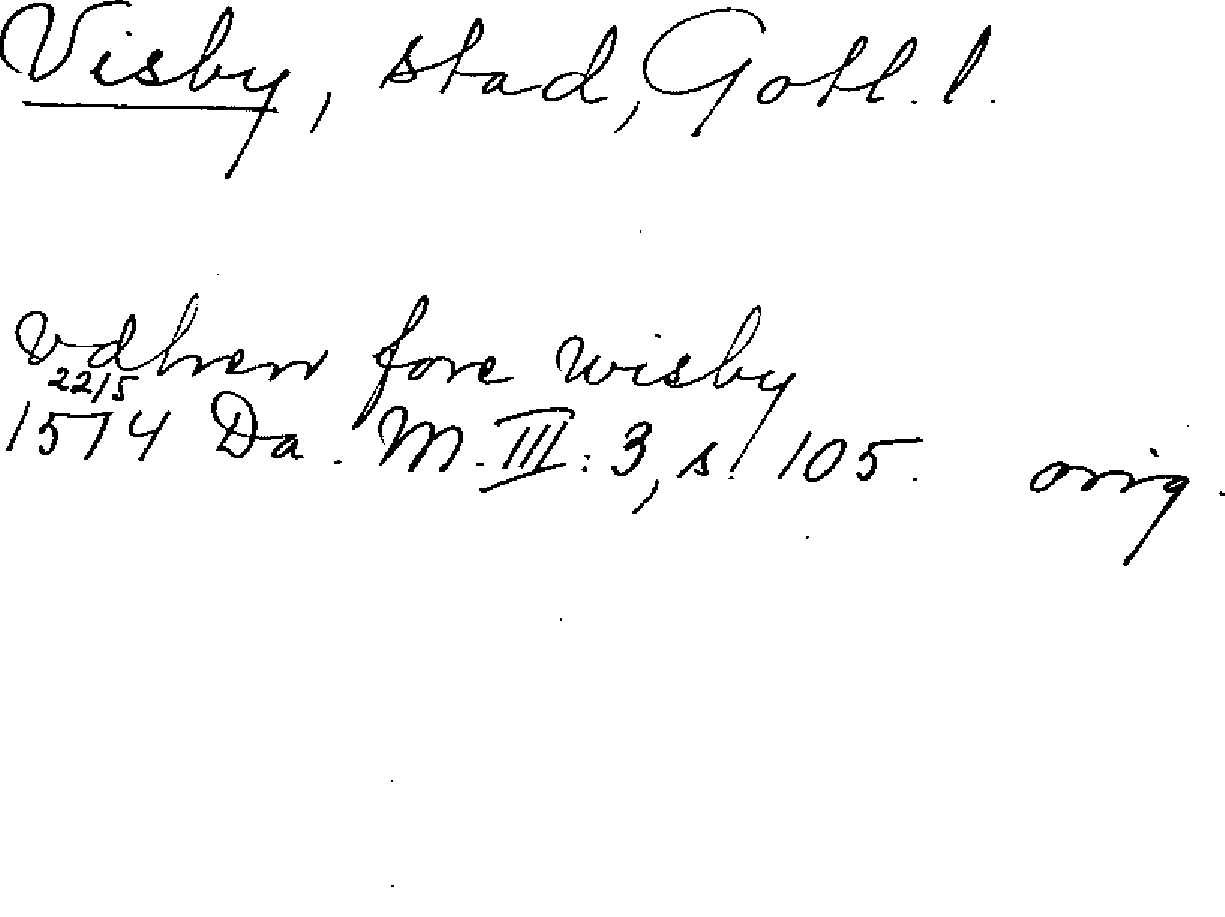 Visby, stad, Gotl. l.
vdhen fore wisby
22/5
1574 Da. M. III: 3, s. 105. orig.